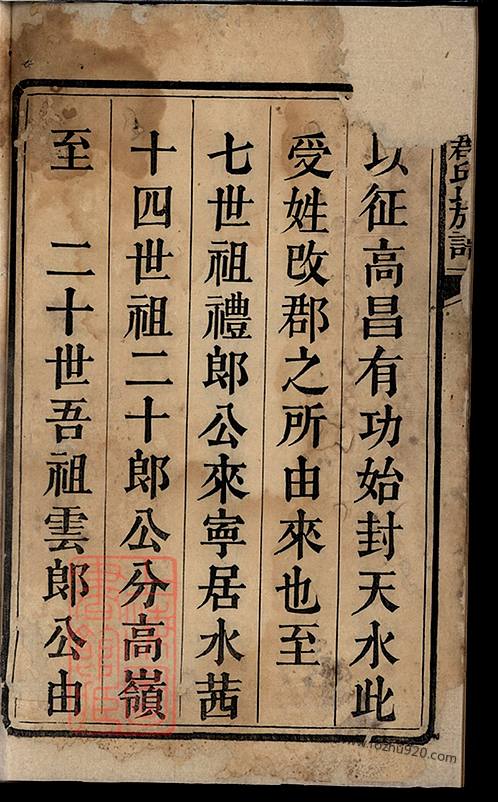 以征高昌有功始封天水此
受姓改郡之所由來也至
七世祖禮郎公來寧居水茜
十四世祖二十郎公分高嶺
至　二十世吾祖雲郎公由
氏族譜
www.fozhu920.com